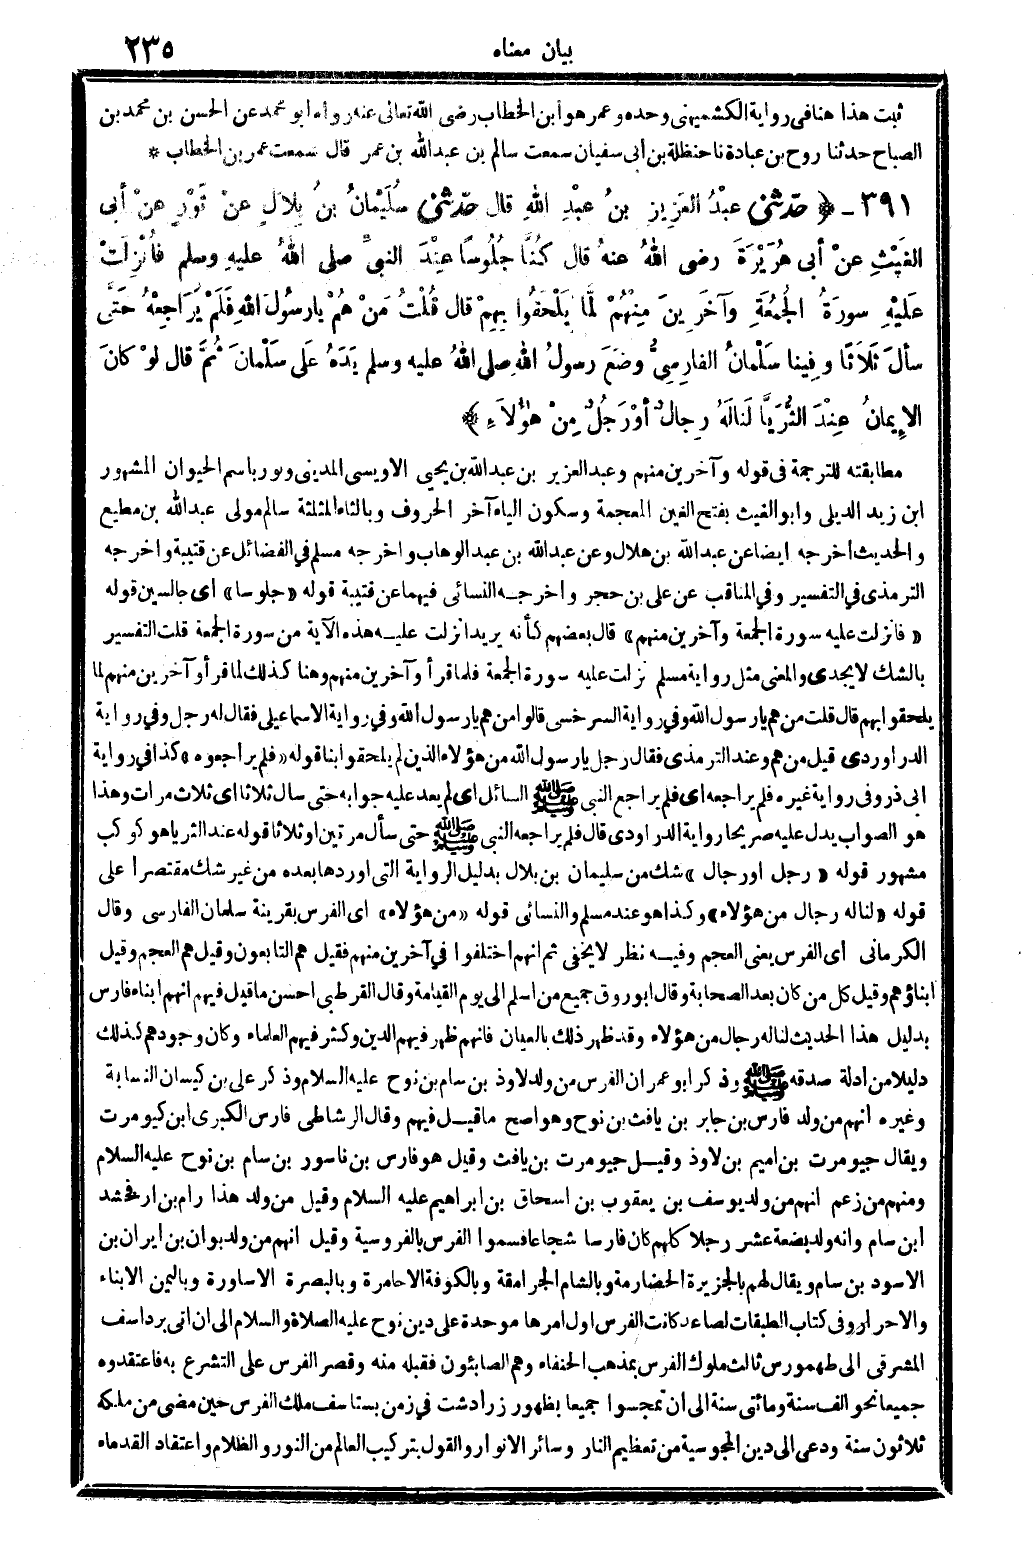 بيان معناه ٢٣٥
ثبت هذا هنا في رواية الكشميهني وحده وعمر هو ابن الخطاب رضى الله تعالى عنه رواه ابو محمد عن الحسن بن محمد بن
الصباح حدثنا روح بن عبادة نا حنظلة بن أبي سفيان سمعت سالم بن عبدالله بن عمر قال سمعت عمر بن الخطاب *
٣٩١ - ﴿ حَدَّثَنِي عَبْدُ العَزِيزِ بنُ عَبْدِ اللهِ قال حَدَّثَنِي سُلَيْمَانُ بنُ بِلَالٍ عنْ ثَوْرٍ عنْ أبي
الغَيْثِ عنْ أبي هُرَيْرَةَ رضى اللهُ عنهُ قال كُنَّا جُلُوسًا عِنْدَ النبيِّ صلى اللهُ عليهِ وسلم فأُنْزِلَتْ
عَلَيْهِ سورَةُ الجُمُعَةِ وآخَرِينَ مِنْهُمْ لَمَّا يَلْحَقُوا بِهِمْ قال قُلْتُ مَنْ هُمْ يارسُولَ اللهِ فَلَمْ يُرَاجِعْهُ حَتَّى
سألَ ثَلَاثًا وفِينا سَلْمانُ الفارِسِيُّ وضَعَ رسولُ اللهِ صلى اللهُ عليه وسلم يَدَهُ علَى سَلْمانَ ثُمَّ قال لوْ كانَ
الإِيمانُ عِنْدَ الثُّرَيَّا لَنالَهُ رِجالٌ أوْ رَجُلٌ مِنْ هٰؤُلَاءِ ﴾
مطابقته للترجمة في قوله وآخرين منهم وعبدالعزيز بن عبدالله بن يحيى الاويسي المديني وثور باسم الحيوان المشهور
ابن زيد الديلي وابوالغيث بفتح الغين المعجمة وسكون الياء آخر الحروف وبالثاء المثلثة سالم مولى عبدالله بن مطيع
والحديث أخرجه ايضا عن عبدالله بن هلال وعن عبدالله بن عبدالوهاب واخرجه مسلم في الفضائل عن قتيبة واخرجه
الترمذي في التفسير وفي المناقب عن علي بن حجر واخرجه النسائي فيهما عن قتيبة قوله «جلوسا» أي جالسين قوله
« فانزلت عليه سورة الجمعة وآخرين منهم» قال بعضهم كأنه يريد انزلت عليه هذه الآية من سورة الجمعة قلت التفسير
بالشك لا يجدى والمعنى مثل رواية مسلم نزلت عليه سورة الجمعة فلما قرأ وآخرين منهم وهنا كذلك لما قرأ وآخرين منهم لما
يلحقوا بهم قال قلت من هم يارسول الله وفي رواية السرخسي قالوا من هم يارسول الله وفي رواية الاسماعيلي فقال له رجل وفي رواية
الدراوردى قيل من هم وعند الترمذى فقال رجل يارسول الله من هؤلاء الذين لم يلحقوا بنا قوله «فلم يراجعوه» كذا في رواية
ابى ذر وفى رواية غيره فلم يراجعه اى فلم يراجع النبي ﷺ السائل اى لم يعد عليه جوابه حتى سال ثلاثا اى ثلاث مرات وهذا
هو الصواب يدل عليه صريحا رواية الدراوردى قال فلم يراجعه النبي ﷺ حتى سأل مرتين او ثلاثا قوله عند الثريا هو كوكب
مشهور قوله « رجل اورجال »شك من سليمان بن بلال بدليل الرواية التى اوردها بعده من غير شك مقتصرا على
قوله «لناله رجال من هؤلاء» وكذا هو عند مسلم والنسائى قوله «من هؤلاء» اى الفرس بقرينة سلمان الفارسى وقال
الكرمانى أى الفرس يعنى العجم وفيه نظر لا يخفى ثم انهم اختلفوا في آخرين منهم فقيل هم التابعون وقيل هم العجم وقيل
ابناؤهم وقيل كل من كان بعد الصحابة وقال ابوروق جميع من اسلم الى يوم القيامة وقال القرطبى احسن ماقيل فيهم انهم ابناء فارس
بدليل هذا الحديث لناله رجال من هؤلاء وقد ظهر ذلك بالعيان فانهم ظهر فيهم الدين وكثر فيهم العلماء وكان وجودهم كذلك
دليلا من ادلة صدقه ﷺ وذكر ابوعمر ان الفرس من ولد لاوذ بن سام بن نوح عليه السلام وذكر على بن كيسان النسابة
وغيره أنهم من ولد فارس بن جابر بن يافث بن نوح وهو اصح ماقيل فيهم وقال الرشاطى فارس الكبرى ابن كيومرت
ويقال جيومرت بن اميم بن لاوذ وقيل جيومرت بن يافث وقيل هو فارس بن ناسور بن سام بن نوح عليه السلام
ومنهم من زعم انهم من ولد يوسف بن يعقوب بن اسحاق بن ابراهيم عليه السلام وقيل من ولد هذا رام بن ارفخشد
ابن سام وانه ولد بضعة عشر رجلا كلهم كان فارسا شجاعا فسموا الفرس بالفروسية وقيل انهم من ولد بوان بن ايران بن
الاسود بن سام ويقال لهم بالجزيرة الحضارمة وبالشام الجرامقة وبالكوفة الاحامرة وبالبصرة الاساورة وباليمن الابناء
والاحرار وفى كتاب الطبقات لصاعد كانت الفرس اول امرها موحدة على دين نوح عليه الصلاة والسلام الى ان اتى برداسف
المشرقى الى طهمورس ثالث ملوك الفرس بمذهب الحنفاء وهم الصابئون فقبله منه وقصر الفرس على التشرع به فاعتقدوه
جميعا نحو الف سنة ومائتى سنة الى ان تمجسوا جميعا بظهور زرادشت في زمن بستاسف ملك الفرس حين مضى من ملكه
ثلاثون سنة ودعى الى دين المجوسية من تعظيم النار وسائر الانوار والقول بتركيب العالم من النور والظلام واعتقاد القدماء